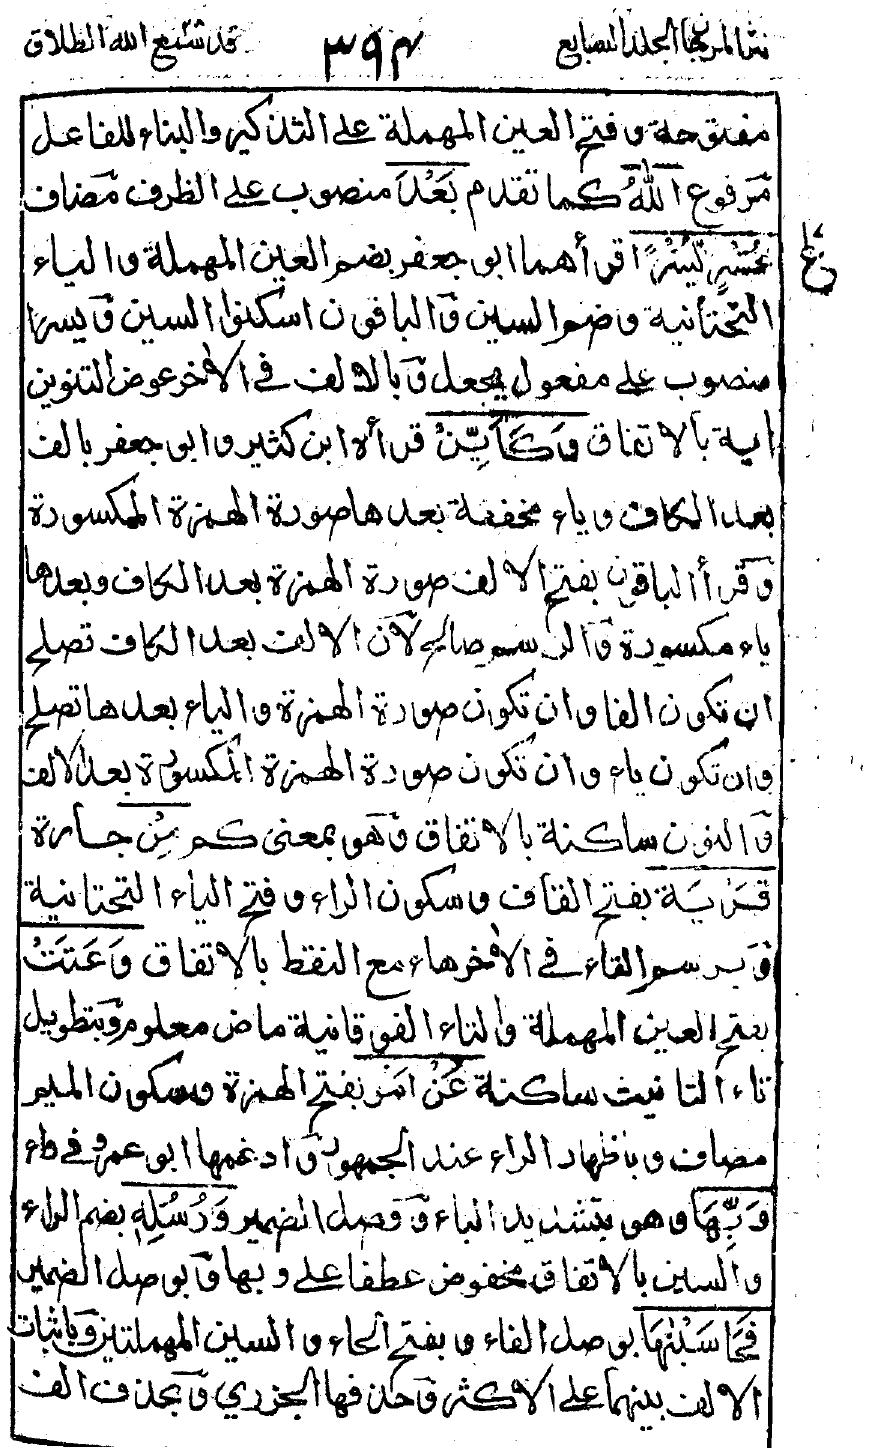 نثر المرجان الجلد السابع ٣٩٤ قد سمع الله الطلاق
مفتوحة و فتح العين المهملة على التذكير والبناء للفاعل
مرفوع اللهُ كما تقدم بَعْدَ منصوب على الظرف مضاف
عُسْرٍ يُسْرًا قرأهما ابو جعفر بضم العين المهملة والياء
التحتانية وضم السين وَالباقون اسكنوا السين وَيسرا
منصوب على مفعول يجعل وَبالالف فى الاخر عوض التنوين
اية بالاتفاق وَكَأَيِّنْ قرأه ابن كثير وابو جعفر بالف
بعد الكاف وياء مخففة بعدها صورة الهمزة المكسورة
وَقرأ الباقون بفتح الالف صورة الهمزة بعد الكاف وبعدها
ياء مكسورة وَالرسم صالح لاَن الالف بعد الكاف تصلح
ان تكون الفا وان تكون صورة الهمزة والياء بعدها تصلح
وان تكون ياء وان تكون صورة الهمزة المكسورة بعد الالف
وَالنون ساكنة بالاتفاق وَهو بمعنى كم مِنْ جارة
قَرْيَةٍ بفتح القاف وسكون الراء وفتح الياء التحتانية
وَبرسم التاء فى الاخر هاء مع النقط بالاتفاق وَعَتَتْ
بفتح العين المهملة والتاء الفوقانية ماض معلوم وَبتطويل
تاء التانيث ساكنة عَنْ اَمْرِ بفتح الهمزة وسكون الميم
مضاف وباظهار الراء عند الجمهور وَادغمها ابو عمرو فى راء
رَبِّهَا وهو بتشديد الباء وَوصل الضمير وَرُسُلِهٖ بضم الراء
والسين بالاتفاق مخفوض عطفا على ربها وَبوصل الضمير
فَحَاسَبْنٰهَا بوصل الفاء وبفتح الحاء والسين المهملتين وَباثبات
الالف بينهما على الاكثر وَحذفها الجزري وَبحذف الف
ع